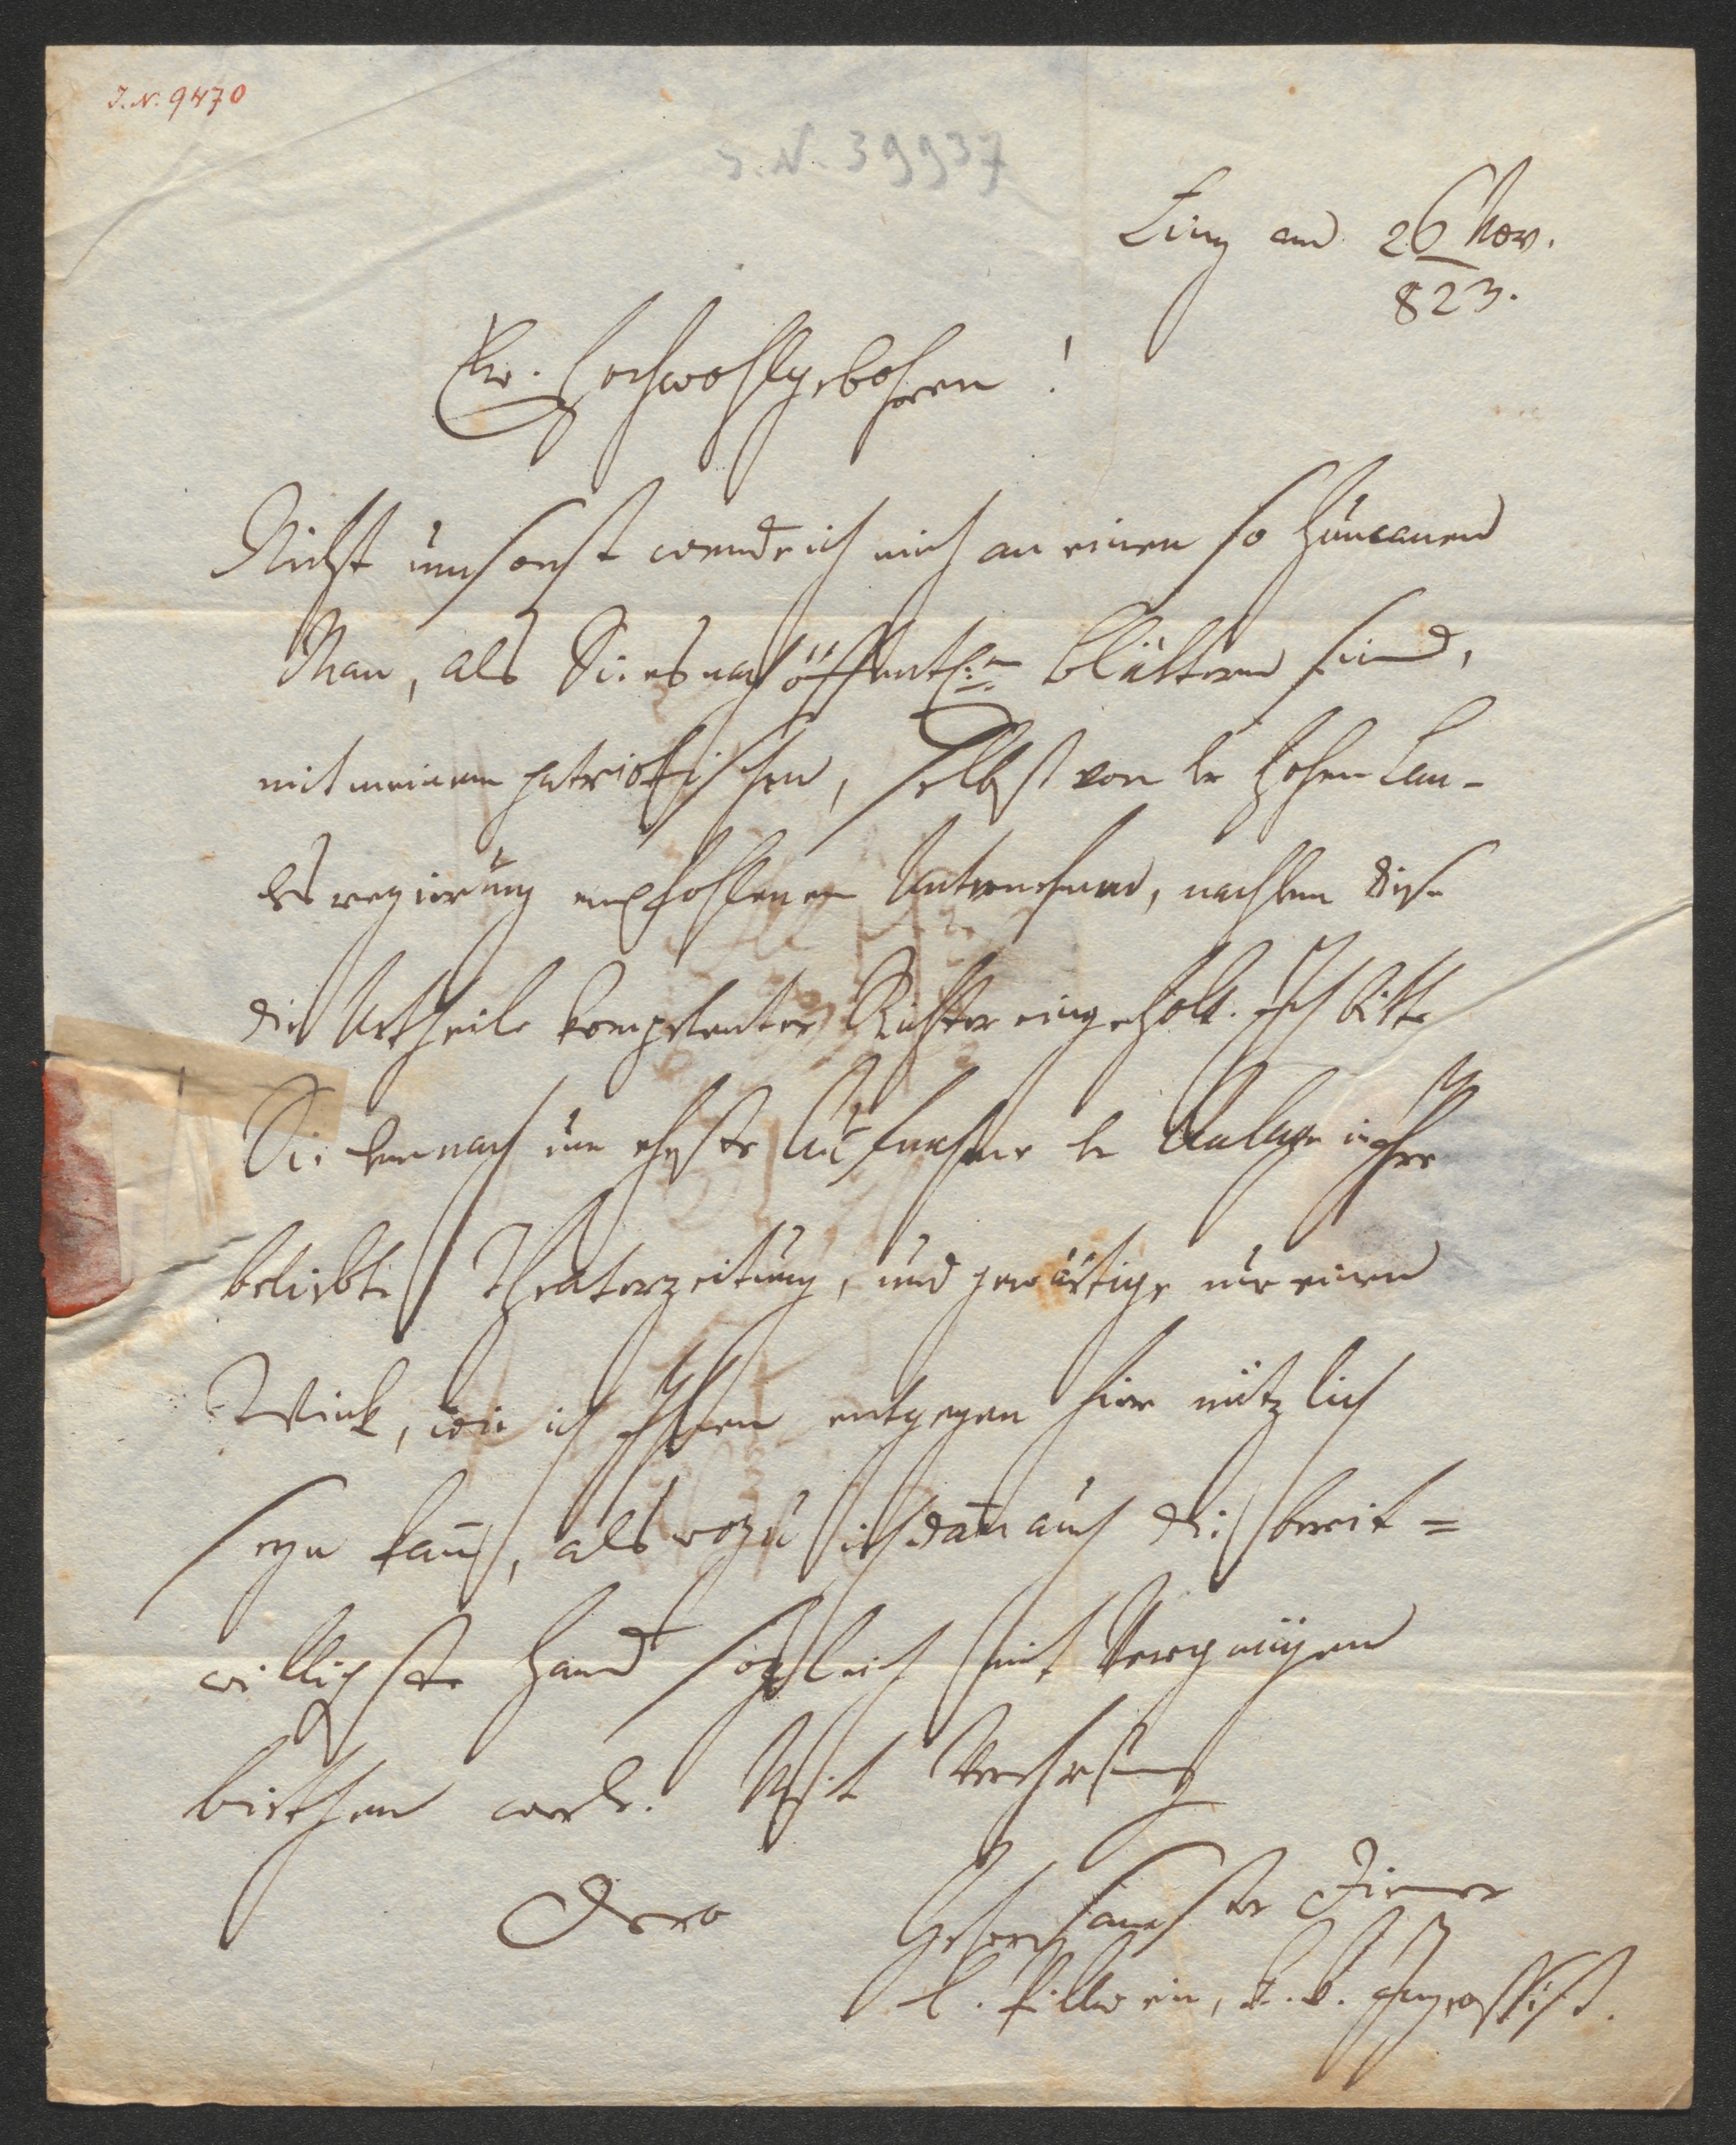 I.N. 9470
I.N. 39937
Linz am 26 Nov.
823.
Ew. Hochwohlgebohren!
Nicht umsonst wende ich mich an einen so humanen
Man, als Sie es nach öffentl:n Blättern sind,
mit meinem patriotischen, selbst von der hohen Lan-
desregierung empfohlenen Unternehmen, nachdem diese
die Urtheile kompetenter Richter eingeholt. Ich bitte
Sie demnach um ehester Aufnahme der Anlage in Ihre
beliebte Theaterzeitung, und gewärtige nur einen
Wink, wie ich Ihnen entgegen hier nützlich
seyn kann, als wozu ich dann auch die bereit=
willigste Hand sogleich mit Vergnügen
biethen werde. Mit Verehrung
Dero
Gehorsamster Diener
B. Pillwein, k. k. Ingrossist.